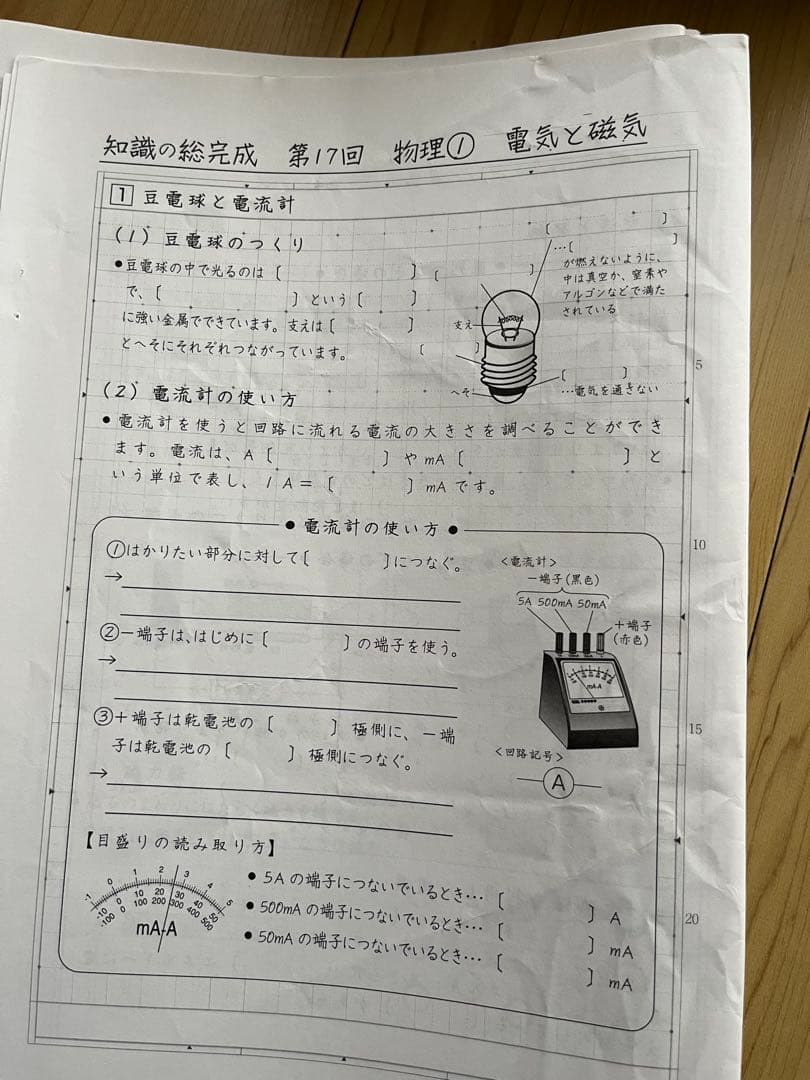 知識の総完成 第17回 物理① 電気と磁気
1 豆電球と電流計
(1) 豆電球のつくり
●豆電球の中で光るのは〔 〕
で、〔 〕という〔 〕
に強い金属でできています。支えは〔 〕
とへそにそれぞれつながっています。
〔 〕
〔 〕
支え
へそ
〔 〕
…〔 〕
が燃えないように、
中は真空か、窒素や
アルゴンなどで満た
されている
〔 〕
…電気を通さない
5
(2) 電流計の使い方
●電流計を使うと回路に流れる電流の大きさを調べることができ
ます。電流は、A〔 〕やmA〔 〕と
いう単位で表し、1A=〔 〕mAです。
●電流計の使い方●
10
①はかりたい部分に対して〔 〕につなぐ。
→
②−端子は、はじめに〔 〕の端子を使う。
→
③+端子は乾電池の〔 〕極側に、−端
子は乾電池の〔 〕極側につなぐ。
→
<電流計>
−端子(黒色)
5A 500mA 50mA
+端子
(赤色)
mA-A
15
<回路記号>
A
【目盛りの読み取り方】
-1 0 1 2 3 4 5
-10 0 10 20 30 40 50
-100 0 100 200 300 400 500
mA-A
●5Aの端子につないでいるとき…〔 〕A
●500mAの端子につないでいるとき…〔 〕mA
●50mAの端子につないでいるとき…〔 〕mA
20